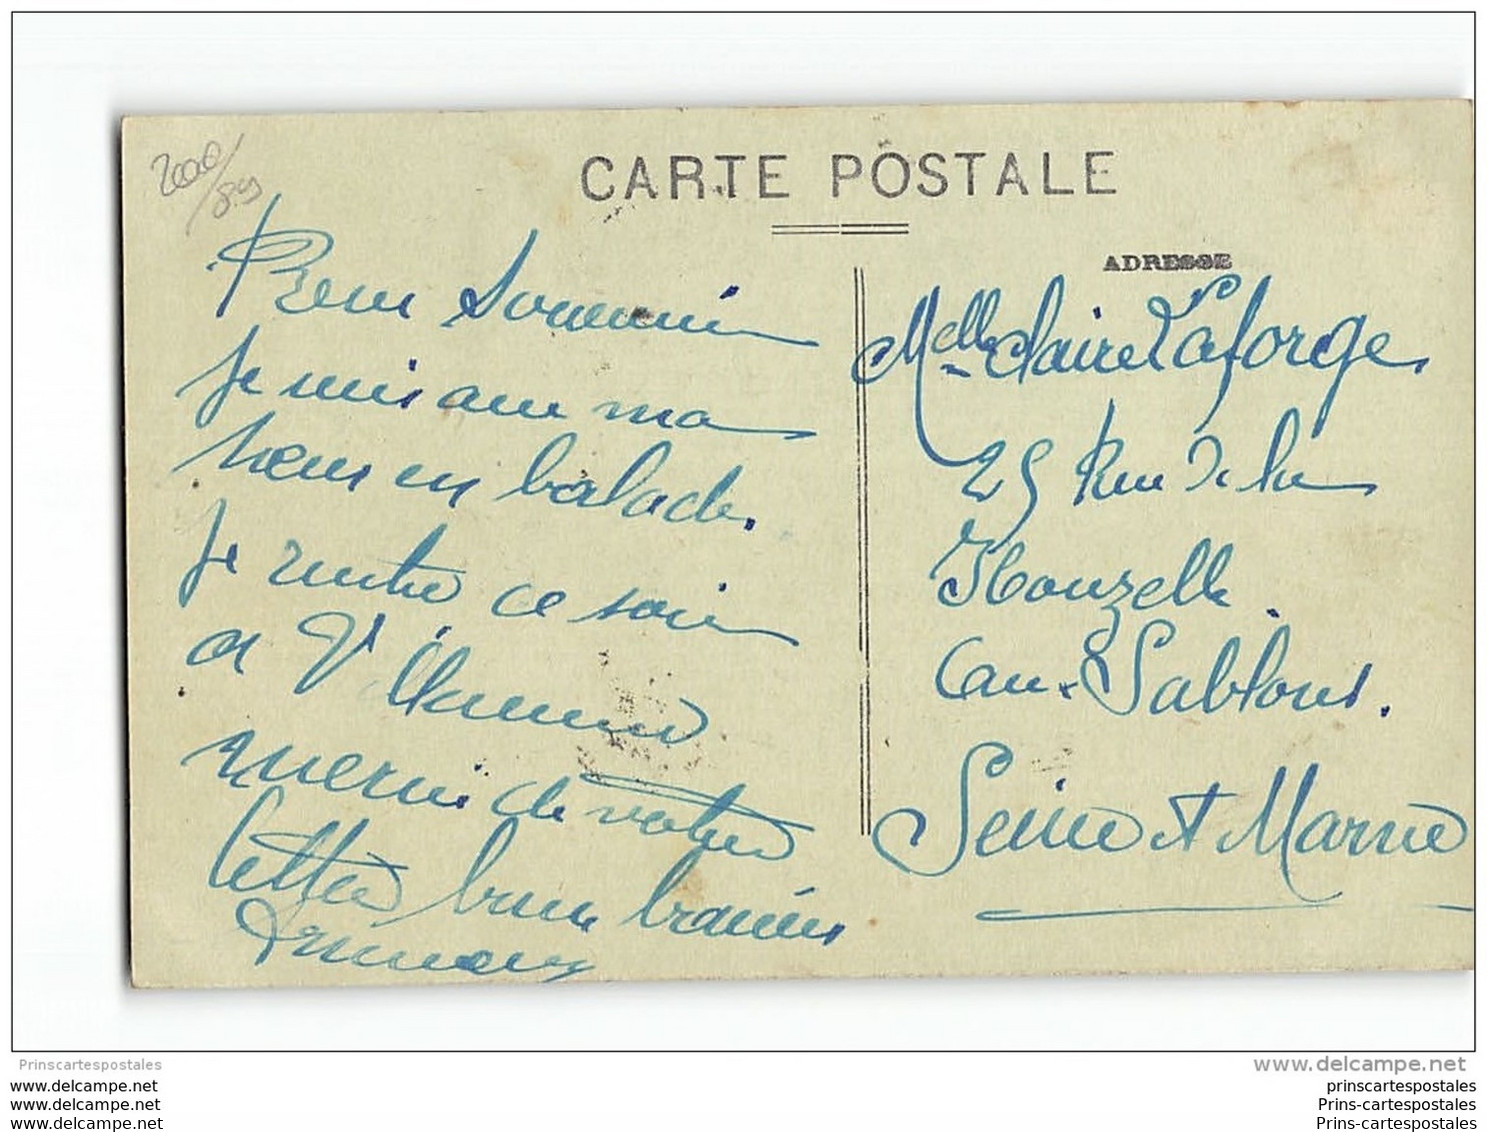 2000/89
CARTE POSTALE
ADRESSE
Bon Souvenir
Je suis avec ma
sœur en balade.
Je rentre ce soir
a
merci de votre
lettre bons baisers
Melle Claire Laforge
25 Rue de la
Cave. Sablons.
Seine et Marne
Prinscartespostales
www.delcampe.net
www.delcampe.net
www.delcampe.net
www.delcampe.net
prinscartespostales
Prins-cartespostales
Prins-cartespostales